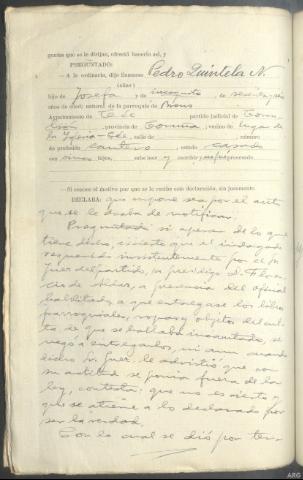 guntas que se le dirijan, ofreció hacerlo así, y
PREGUNTADO:
— A lo ordinario, dijo llamarse Pedro Quintela N.
(alias)
hijo de Josefa y de incognito, de sesenta y seis
años de edad; natural de la parroquia de
Ayuntamiento de Cée partido judicial de Corcu-
bión, provincia de Coruña, vecino de lugar de
la Iglesia-Cée, calle de número
de profesión cantero estado casado
con hijos, sabe leer y escribir y no fué procesado
— Si conoce el motivo por que se le recibe esta declaración, sin juramento.
DECLARA: que supone sea por el auto
que se le acaba de notificar.
Preguntado si apesar de lo que
tiene dicho, es cierto que el indagado
requerido insistentemente por el Sr.
Juez del partido, su prestigio D. Floren-
cio de , a presencia del oficial
habilitado, a que entregase los libros
parroquiales, ropas y objetos del cul-
to, de que se hallaba incautado, se
negó a entregarlos, ni aun cuando
dicho Sr. Juez le advirtió que con
su actitud se ponía fuera de la
ley, contesta: que no es cierto y
que se atiene a lo declarado por
ser la verdad.
Con lo cual se dió por ter-
ARG